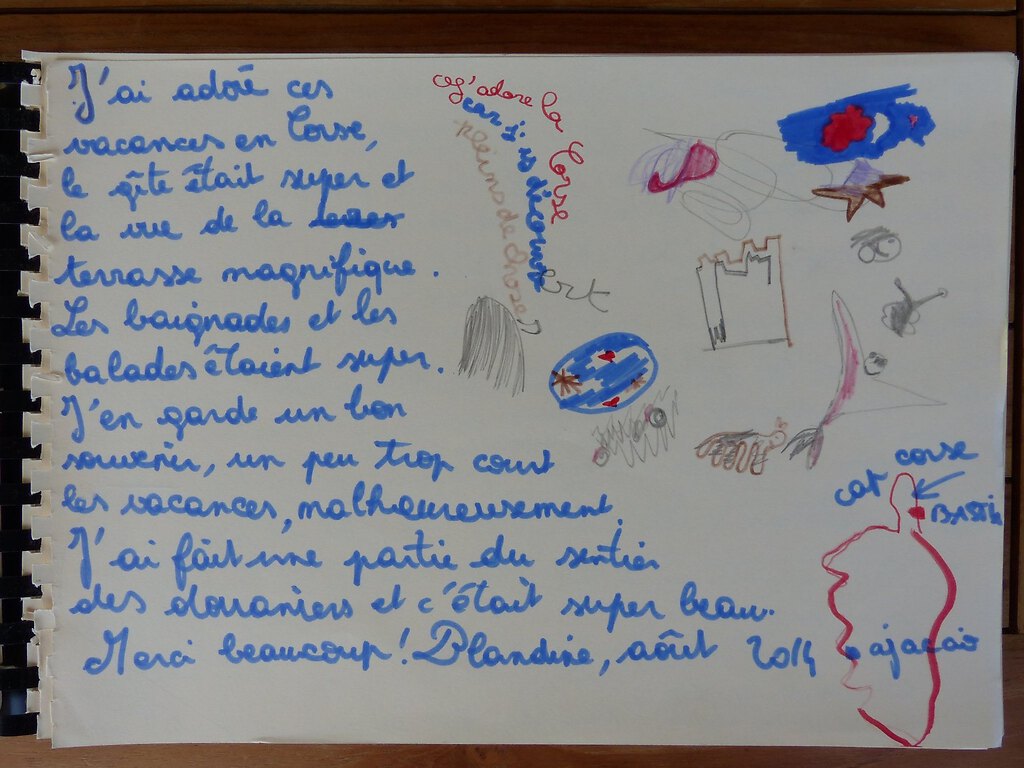 J'ai adoré ces
vacances en Corse,
le gîte était super et
la vue de la
terrasse magnifique.
Les baignades et les
balades étaient super.
J'en garde un bon
souvenir, un peu trop court
les vacances, malheureusement.
J'ai fait une partie du sentier
des douaniers et c'était super beau.
Merci beaucoup! Blandine, août 2014
j'adore la Corse
car j'ai découvert
pleins de choses
cap corse
BASTIA
ajacaio